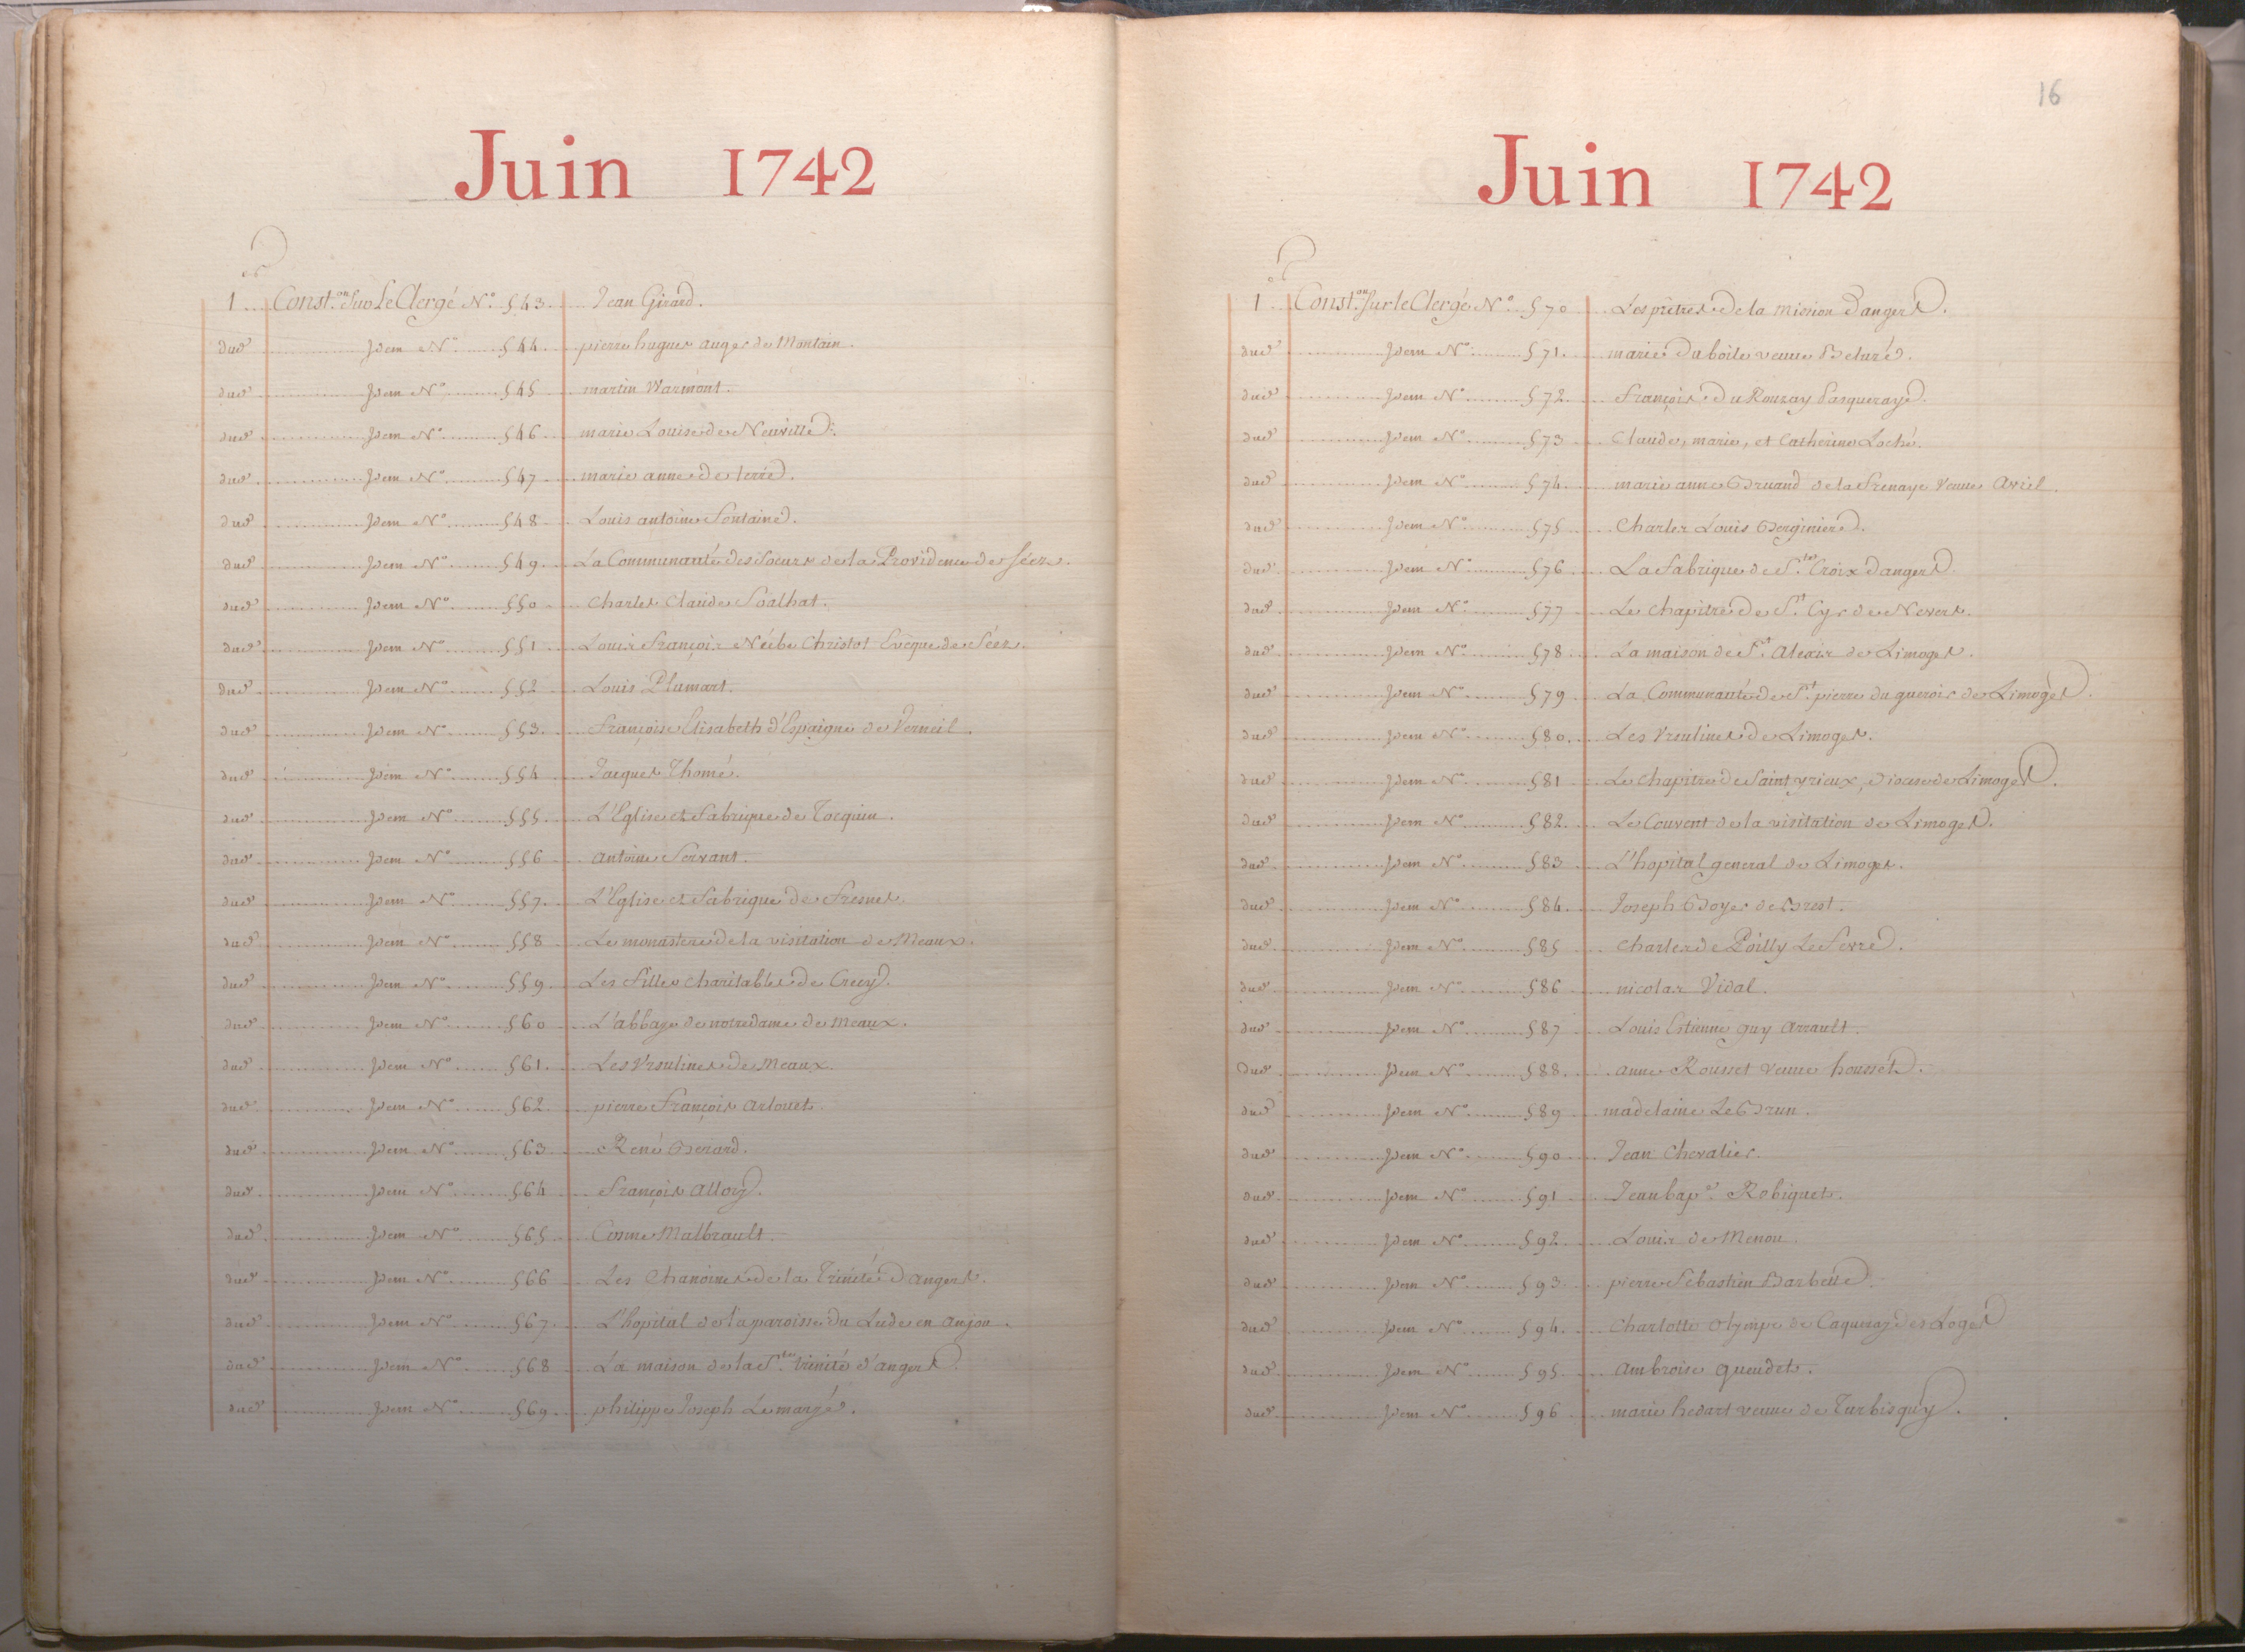 Juin 1742
1er Const.on Sur Le Clergé N.° 543. Jean Girard.
dud. Idem N.° 544. pierre hugues auger de Montain.
dud. Idem N.° 545 martin Warmont.
dud. Idem N.° 546 marie Louise de Neuville.
dud. Idem N.° 547 marie anne de terre.
dud. Idem N.° 548 Louis antoine Fontaine.
dud. Idem N.° 549. La Communauté des Soeurs de la Providence de Séez.
dud. Idem N.° 550 Charles Claude Soalhat.
dud. Idem N.° 551 Louis François Néel de Christot Evêque de Séez.
dud. Idem N.° 552 Louis Plumart.
dud. Idem N.° 553. Françoise Elisabeth d'Espaigne de Verneil.
dud. Idem N.° 554 Jacques Thomé.
dud. Idem N.° 555. L'Eglise et Fabrique de Torquin.
dud. Idem N.° 556 antoine Servant.
dud. Idem N.° 557. L'Eglise et Fabrique de Fresnes.
dud. Idem N.° 558 Le monastere de la visitation de Meaux.
dud. Idem N.° 559 Les filles charitables de Crecy.
dud. Idem N.° 560 L'abbaye de notredame de meaux.
dud. Idem N.° 561. Les Vrsulines de Meaux.
dud. Idem N.° 562 pierre François Artouet.
dud. Idem N.° 563 René Benard.
dud. Idem N.° 564 François Alloy.
dud. Idem N.° 565 Cosme Malbrault.
dud. Idem N.° 566 Les Chanoines de la Trinité d'angers.
dud. Idem N.° 567. L'hopital de la paroisse du Lude en anjou.
dud. Idem N.° 568 La maison de la S.te trinité d'angers.
dud. Idem N.° 569 philippe Joseph Lemargé.
16
Juin 1742
1er Const.on Sur le Clergé N.° 570 Les prêtres de la mission Dangers.
dud. Idem N.° 571. marie Duboile veuve Beluré.
dud. Idem N.° 572. François du Rouzay Pasqueraye.
dud. Idem N.° 573 Claude, marie, et Catherine Loché.
dud. Idem N.° 574. marie anne Bruand de la Frenaye veuve Aviel.
dud. Idem N.° 575 Charles Louis Berginiere.
dud. Idem N.° 576 La fabrique de S.te Croix Dangers.
dud. Idem N.° 577 Le chapitre de S.t Cyr de Nevers.
dud. Idem N.° 578 La maison de S.t Alexis de Limoges.
dud. Idem N.° 579 La Communauté de S.t pierre du queroix de Limoges.
dud. Idem N.° 580. Les Vrsulines de Limoges.
dud. Idem N.° 581 Le chapitre de Saint yrieux, diocese de Limoges.
dud. Idem N.° 582 Le Couvent de la visitation de Limoges.
dud. Idem N.° 583 L'hopital general de Limoges.
dud. Idem N.° 584. Joseph Boyer de Brest.
dud. Idem N.° 585 Charles de Poilly Le Fevre.
dud. Idem N.° 586 nicolas Vidal.
dud. Idem N.° 587 Louis Estienne guy Arrault.
dud. Idem N.° 588. anne Rousset veuve housset.
dud. Idem N.° 589 madelaine Le Brun.
dud. Idem N.° 590 Jean Chevalier.
dud. Idem N.° 591 Jean bap.e Robiquet.
dud. Idem N.° 592 Louis de Menou.
dud. Idem N.° 593 pierre Sebastien Barbette.
dud. Idem N.° 594. Charlotte olympe de Caqueray des Loges
dud. Idem N.° 595 Ambroise queudet.
dud. Idem N.° 596 marie hedart veuve de Turbisquy.